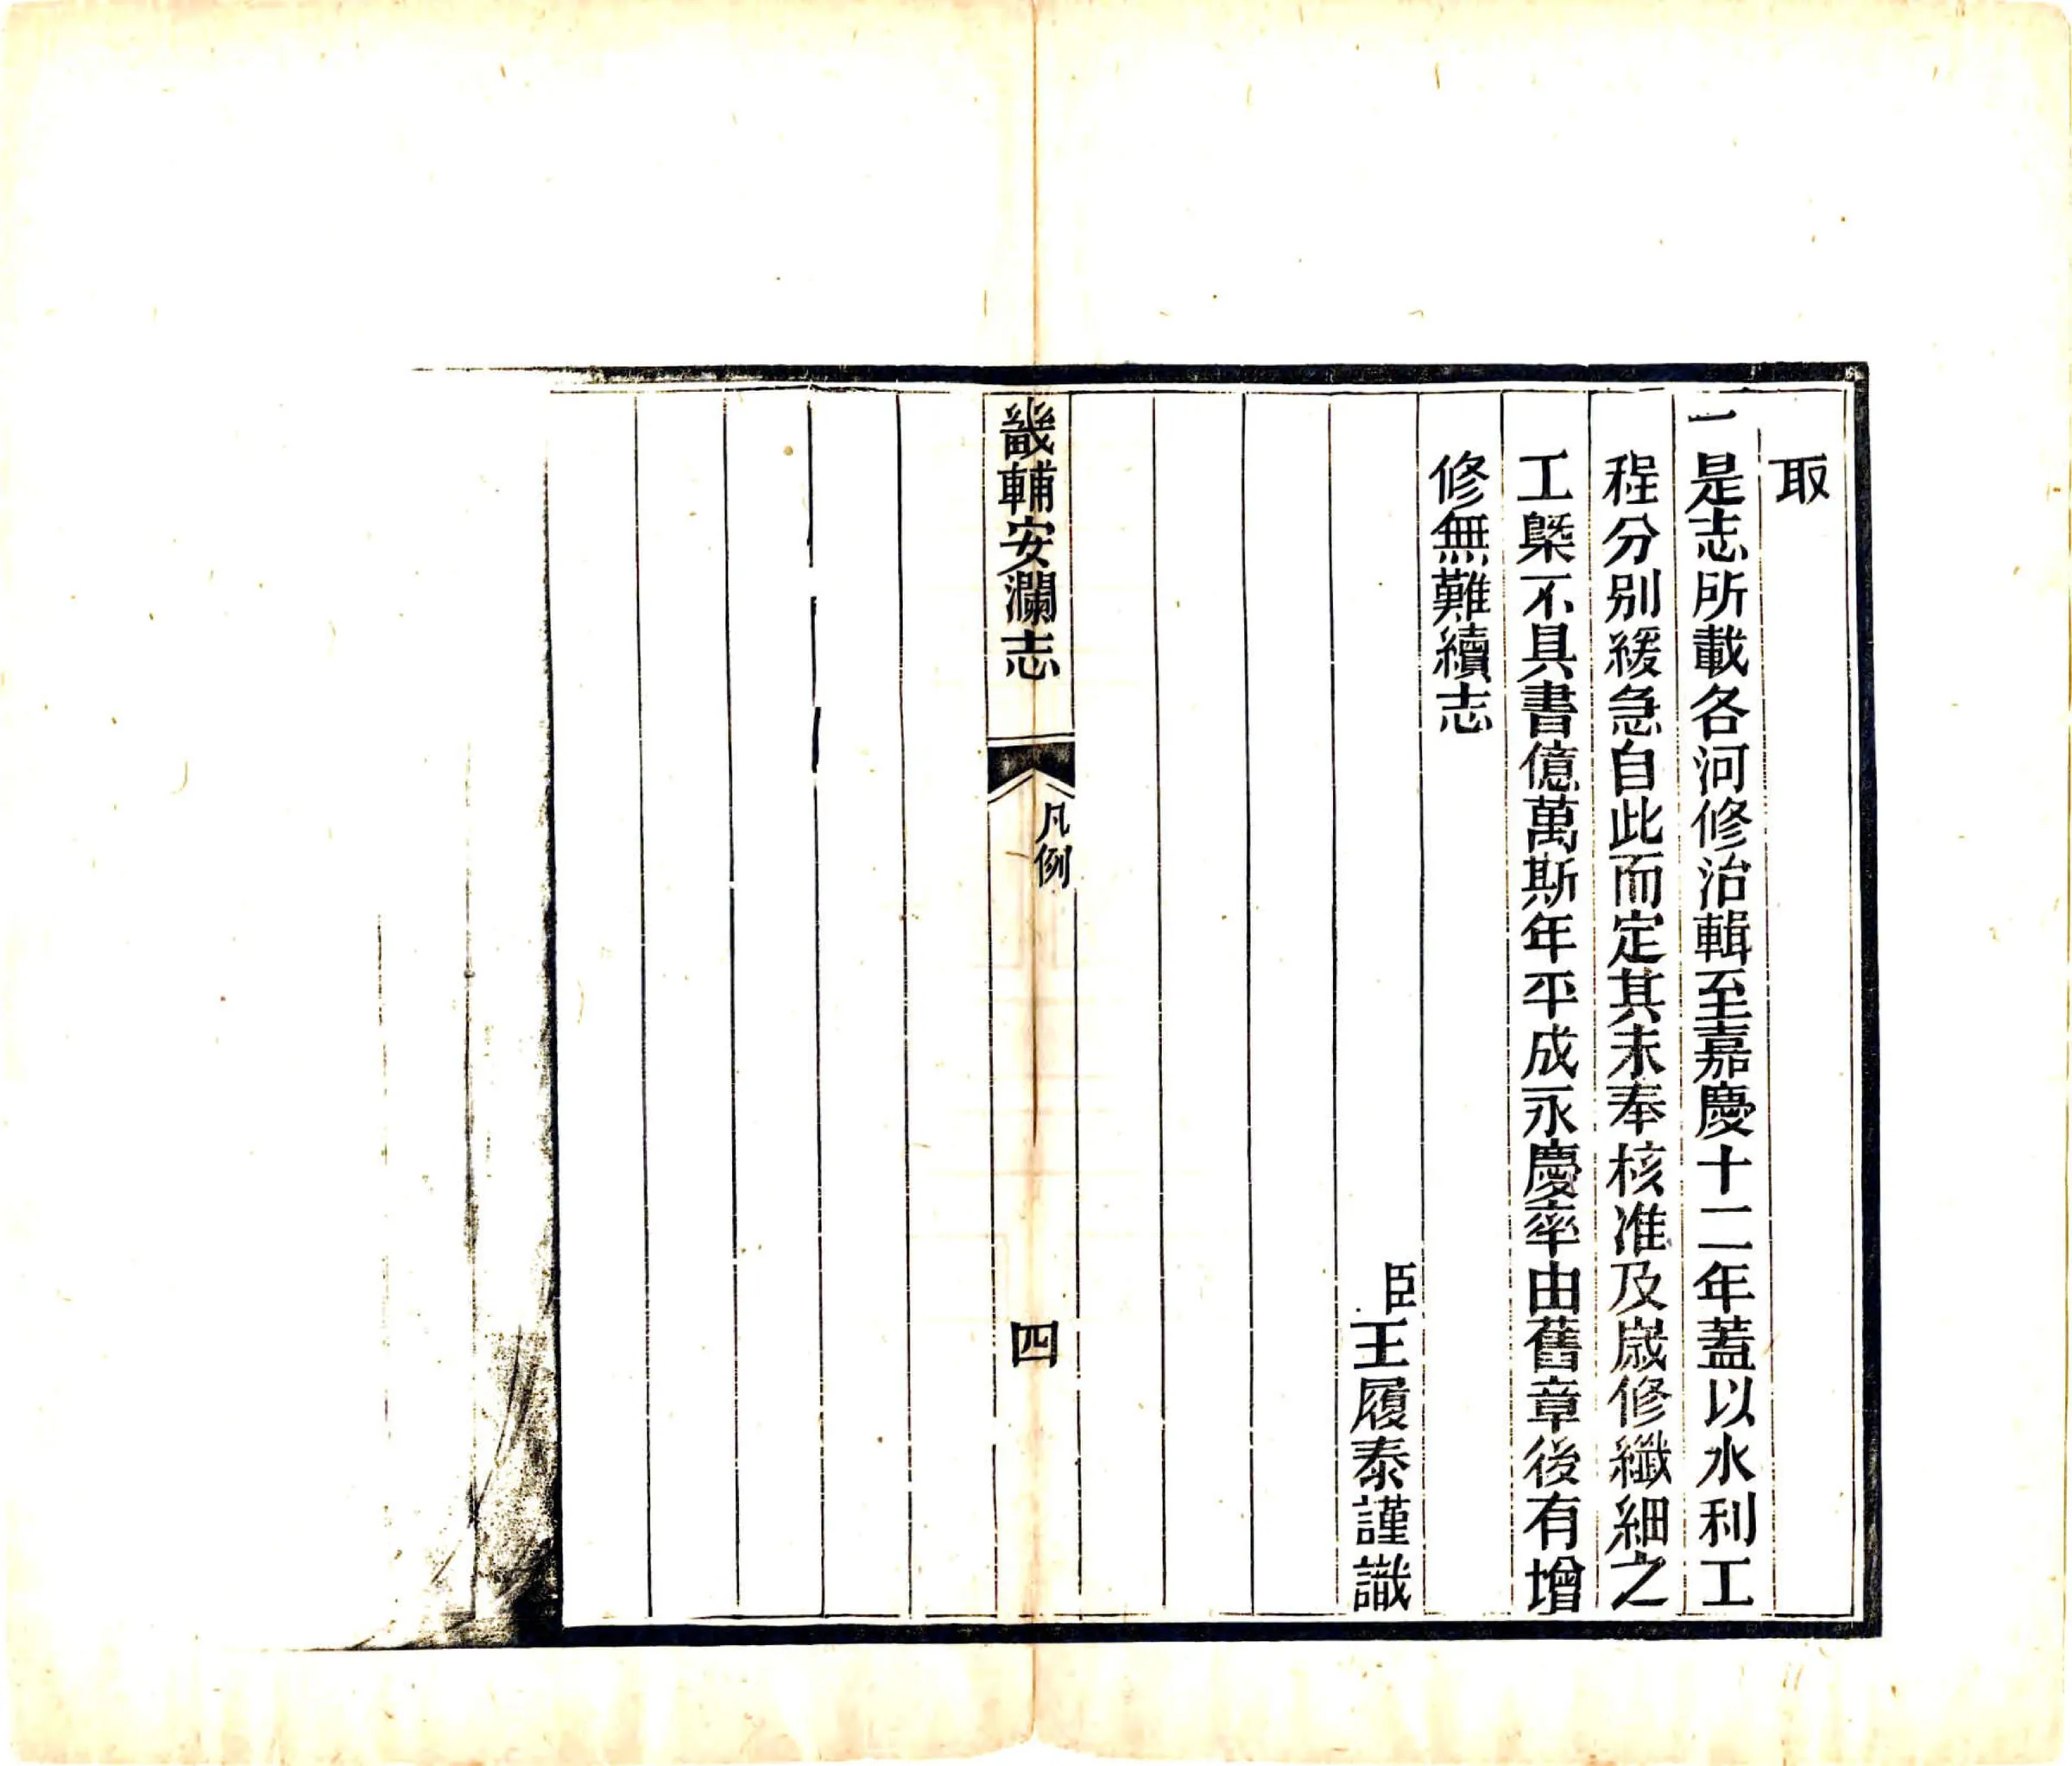 取
一是志所載各河修治輯至嘉慶十二年蓋以水利工
程分别緩急自此而定其未奉核准及嵗修纖細之
工槩不具書億萬斯年平成永慶率由舊章後有增
修無難續志
臣王履泰謹識
畿輔安瀾志
凡例
四